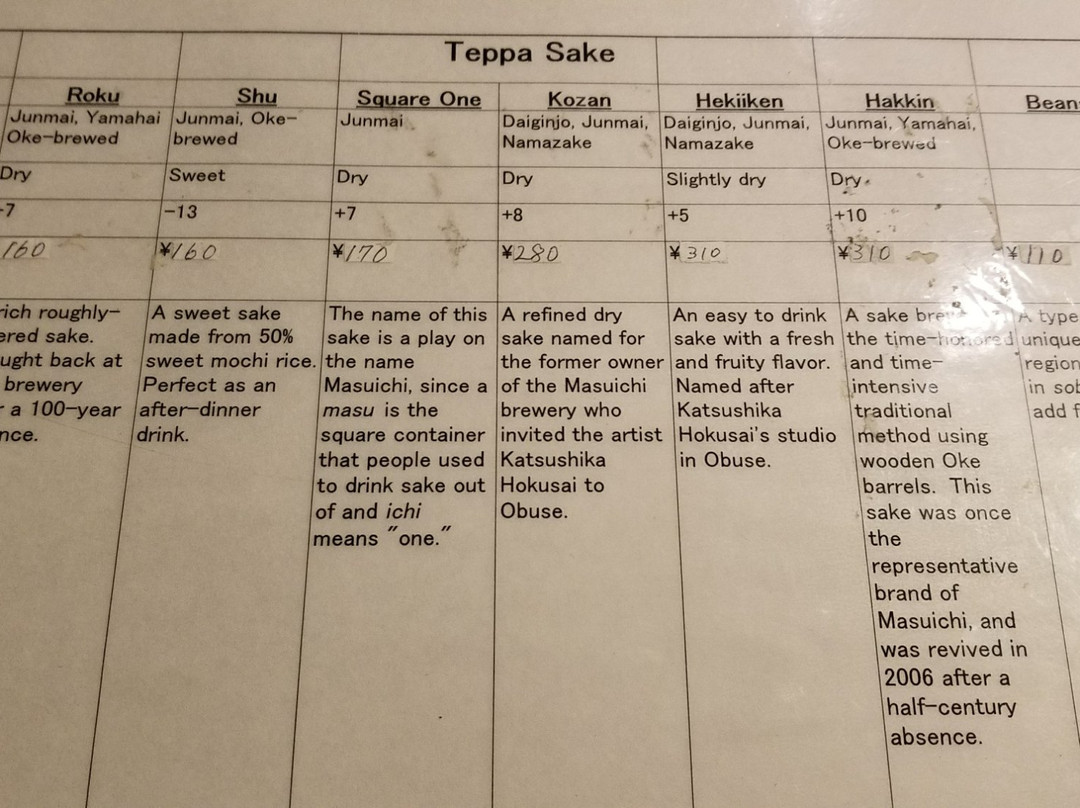 Teppa Sake
Roku Shu Square One Kozan Hekiiken Hakkin Bean
Junmai, Yamahai
Oke-brewed
Junmai, Oke-
brewed
Junmai
Daiginjo, Junmai,
Namazake
Daiginjo, Junmai,
Namazake
Junmai, Yamahai,
Oke-brewed
Dry Sweet Dry Dry Slightly dry Dry
7 -13 +7 +8 +5 +10
160 ¥160 ¥170 ¥280 ¥310 ¥310 ¥110
rich roughly-
ered sake.
ught back at
brewery
r a 100-year
nce.
A sweet sake
made from 50%
sweet mochi rice.
Perfect as an
after-dinner
drink.
The name of this
sake is a play on
the name
Masuichi, since a
masu is the
square container
that people used
to drink sake out
of and ichi
means "one."
A refined dry
sake named for
the former owner
of the Masuichi
brewery who
invited the artist
Katsushika
Hokusai to
Obuse.
An easy to drink
sake with a fresh
and fruity flavor.
Named after
Katsushika
Hokusai's studio
in Obuse.
A sake
the time-honored
and time-
intensive
traditional
method using
wooden Oke
barrels. This
sake was once
the
representative
brand of
Masuichi, and
was revived in
2006 after a
half-century
absence.
A type
unique
region
in sob
add f